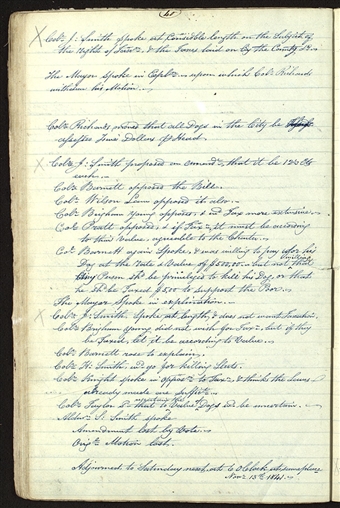 40
X Colr J: Smith spoke at Considble length on the Subject of
the right of Taxn, & the Taxes laid on by the County &c.
The Mayor Spoke in Expln upon which Colr Richards
withdrew his Motion.
Colr Richards moved that all Dogs in the City be
assessed Dollars pr Head.
X Colr J: Smith proposed an amendt, that it be 12½ Cts
each.
Colr Barnett opposed the Bill.
Colr Wilson Law opposed it also.
Colr Brigham Young opposed, & Tax more extensive.
Colr Pratt opposed, & if Tax, it must be according
to their Value, agreeable to the Charter.
Colr Barnett again Spoke, & was willing to pay for his
Dog at the rate & Value of $500,00 but not that
any Person shd be priviliged to kill his Dog, or that
he shd be Taxed $5,00 to support the Poor.
The Mayor Spoke in explanation.
X Colr J: Smith, Spoke at length, & does not want Taxation.
Colr Brigham Young did not wish for Taxn but if they
be Taxed, let it be according to Value.
Colr Barnett rose to explain.
Colr H: Smith, wd go for killing Sluts.
Colr Knight spoke in opposn to Taxn, & thinks the Laws
already made are suffict.
Colr Taylor sd that to Value Dogs wd be uncertain.
Aldn S: Smith spoke
Amendment lost by Vote.
Origl Motion lost.
Adjourned to Saturday next at 6 o'Clock
Novr 13th 1841.